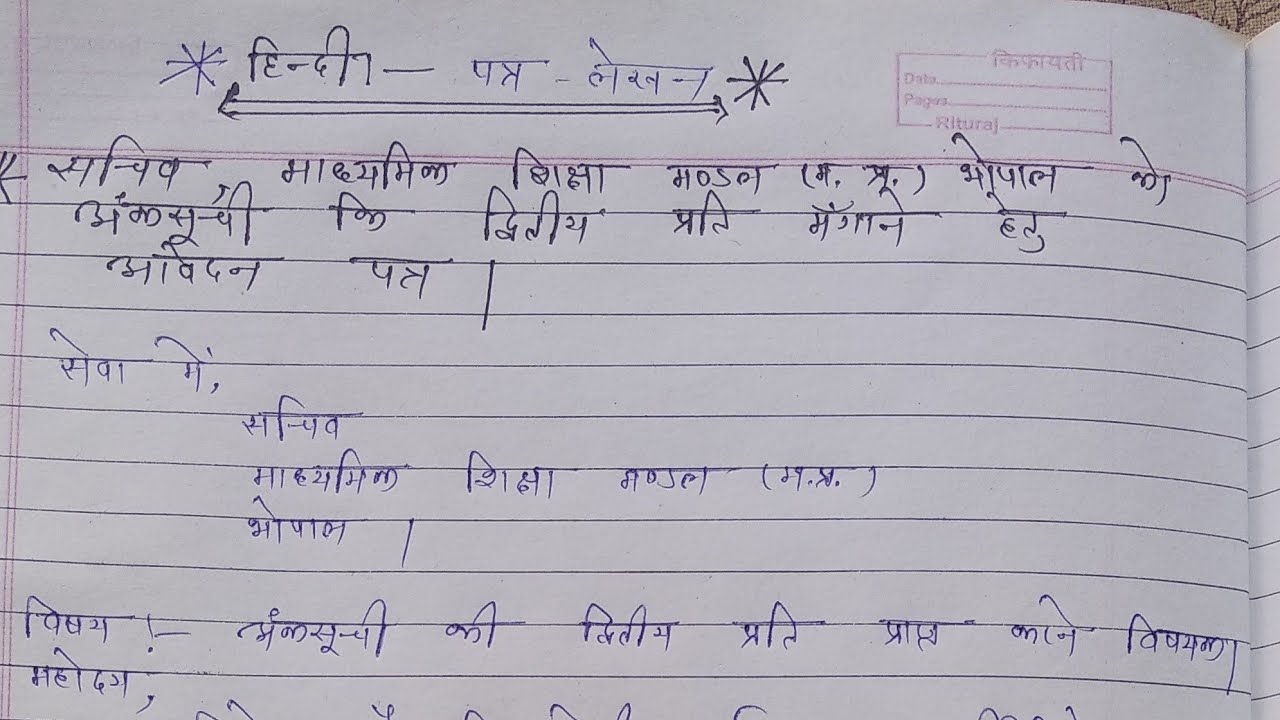 हिन्दी - पत्र - लेखन
किफायती
Date
Pages
Rituraj
सचिव माध्यमिक शिक्षा मण्डल (म. प्र.) भोपाल को
अंकसूची कि द्वितीय प्रति मँगाने हेतु
आवेदन पत्र |
सेवा में,
सचिव
माध्यमिक शिक्षा मण्डल (म.प्र.)
भोपाल |
विषय :- अंकसूची की द्वितीय प्रति प्राप्त करने विषयक|
महोदय,